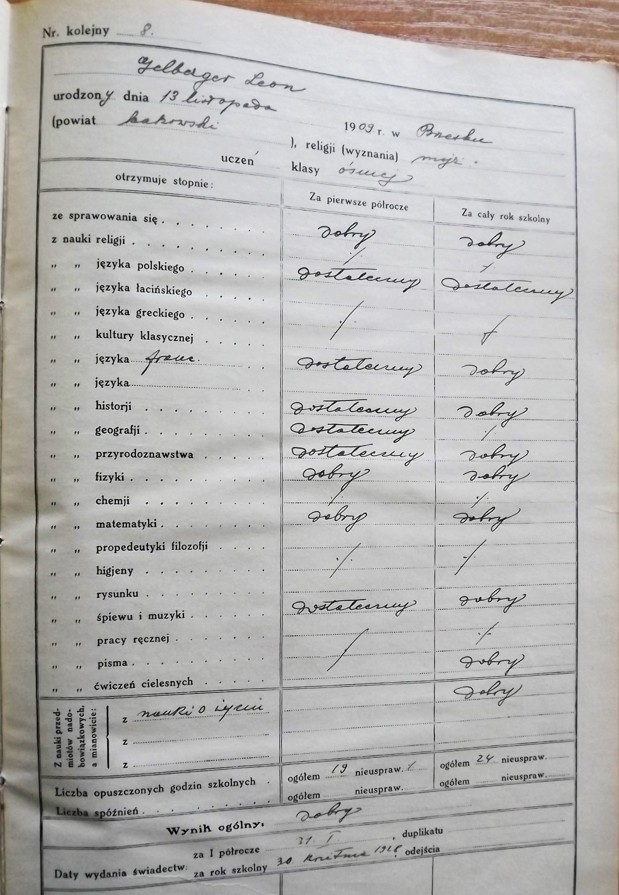 Nr. kolejny 8.
Gelberger Leon
urodzony dnia 13 listopada 1909 r. w Brzesku
(powiat ), religji (wyznania) mojż.
uczeń klasy ósmej
otrzymuje stopnie: Za pierwsze półrocze Za cały rok szkolny
ze sprawowania się dobry dobry
z nauki religji
„ „ języka polskiego dostateczny dostateczny
„ „ języka łacińskiego
„ „ języka greckiego
„ „ kultury klasycznej
„ „ języka franc. dostateczny dobry
„ „ języka
„ „ historji dostateczny dobry
„ „ geografji dostateczny
„ „ przyrodoznawstwa dostateczny dobry
„ „ fizyki dobry dobry
„ „ chemji
„ „ matematyki dobry dobry
„ „ propedeutyki filozofji
„ „ higjeny
„ „ rysunku dostateczny dobry
„ „ śpiewu i muzyki
„ „ pracy ręcznej
„ „ pisma dobry
„ „ ćwiczeń cielesnych dobry
Z nauki przedmiotów nadobowiązkowych, a mianowicie:
z nauki o życiu
z
z
Liczba opuszczonych godzin szkolnych ogółem 19 nieuspraw. ogółem 24 nieuspraw.
Liczba spóźnień ogółem nieuspraw. ogółem nieuspraw.
Wynik ogólny: dobry
Daty wydania świadectw: za I półrocze 31 I, duplikatu
za rok szkolny 30 kwietnia 1928, odejścia